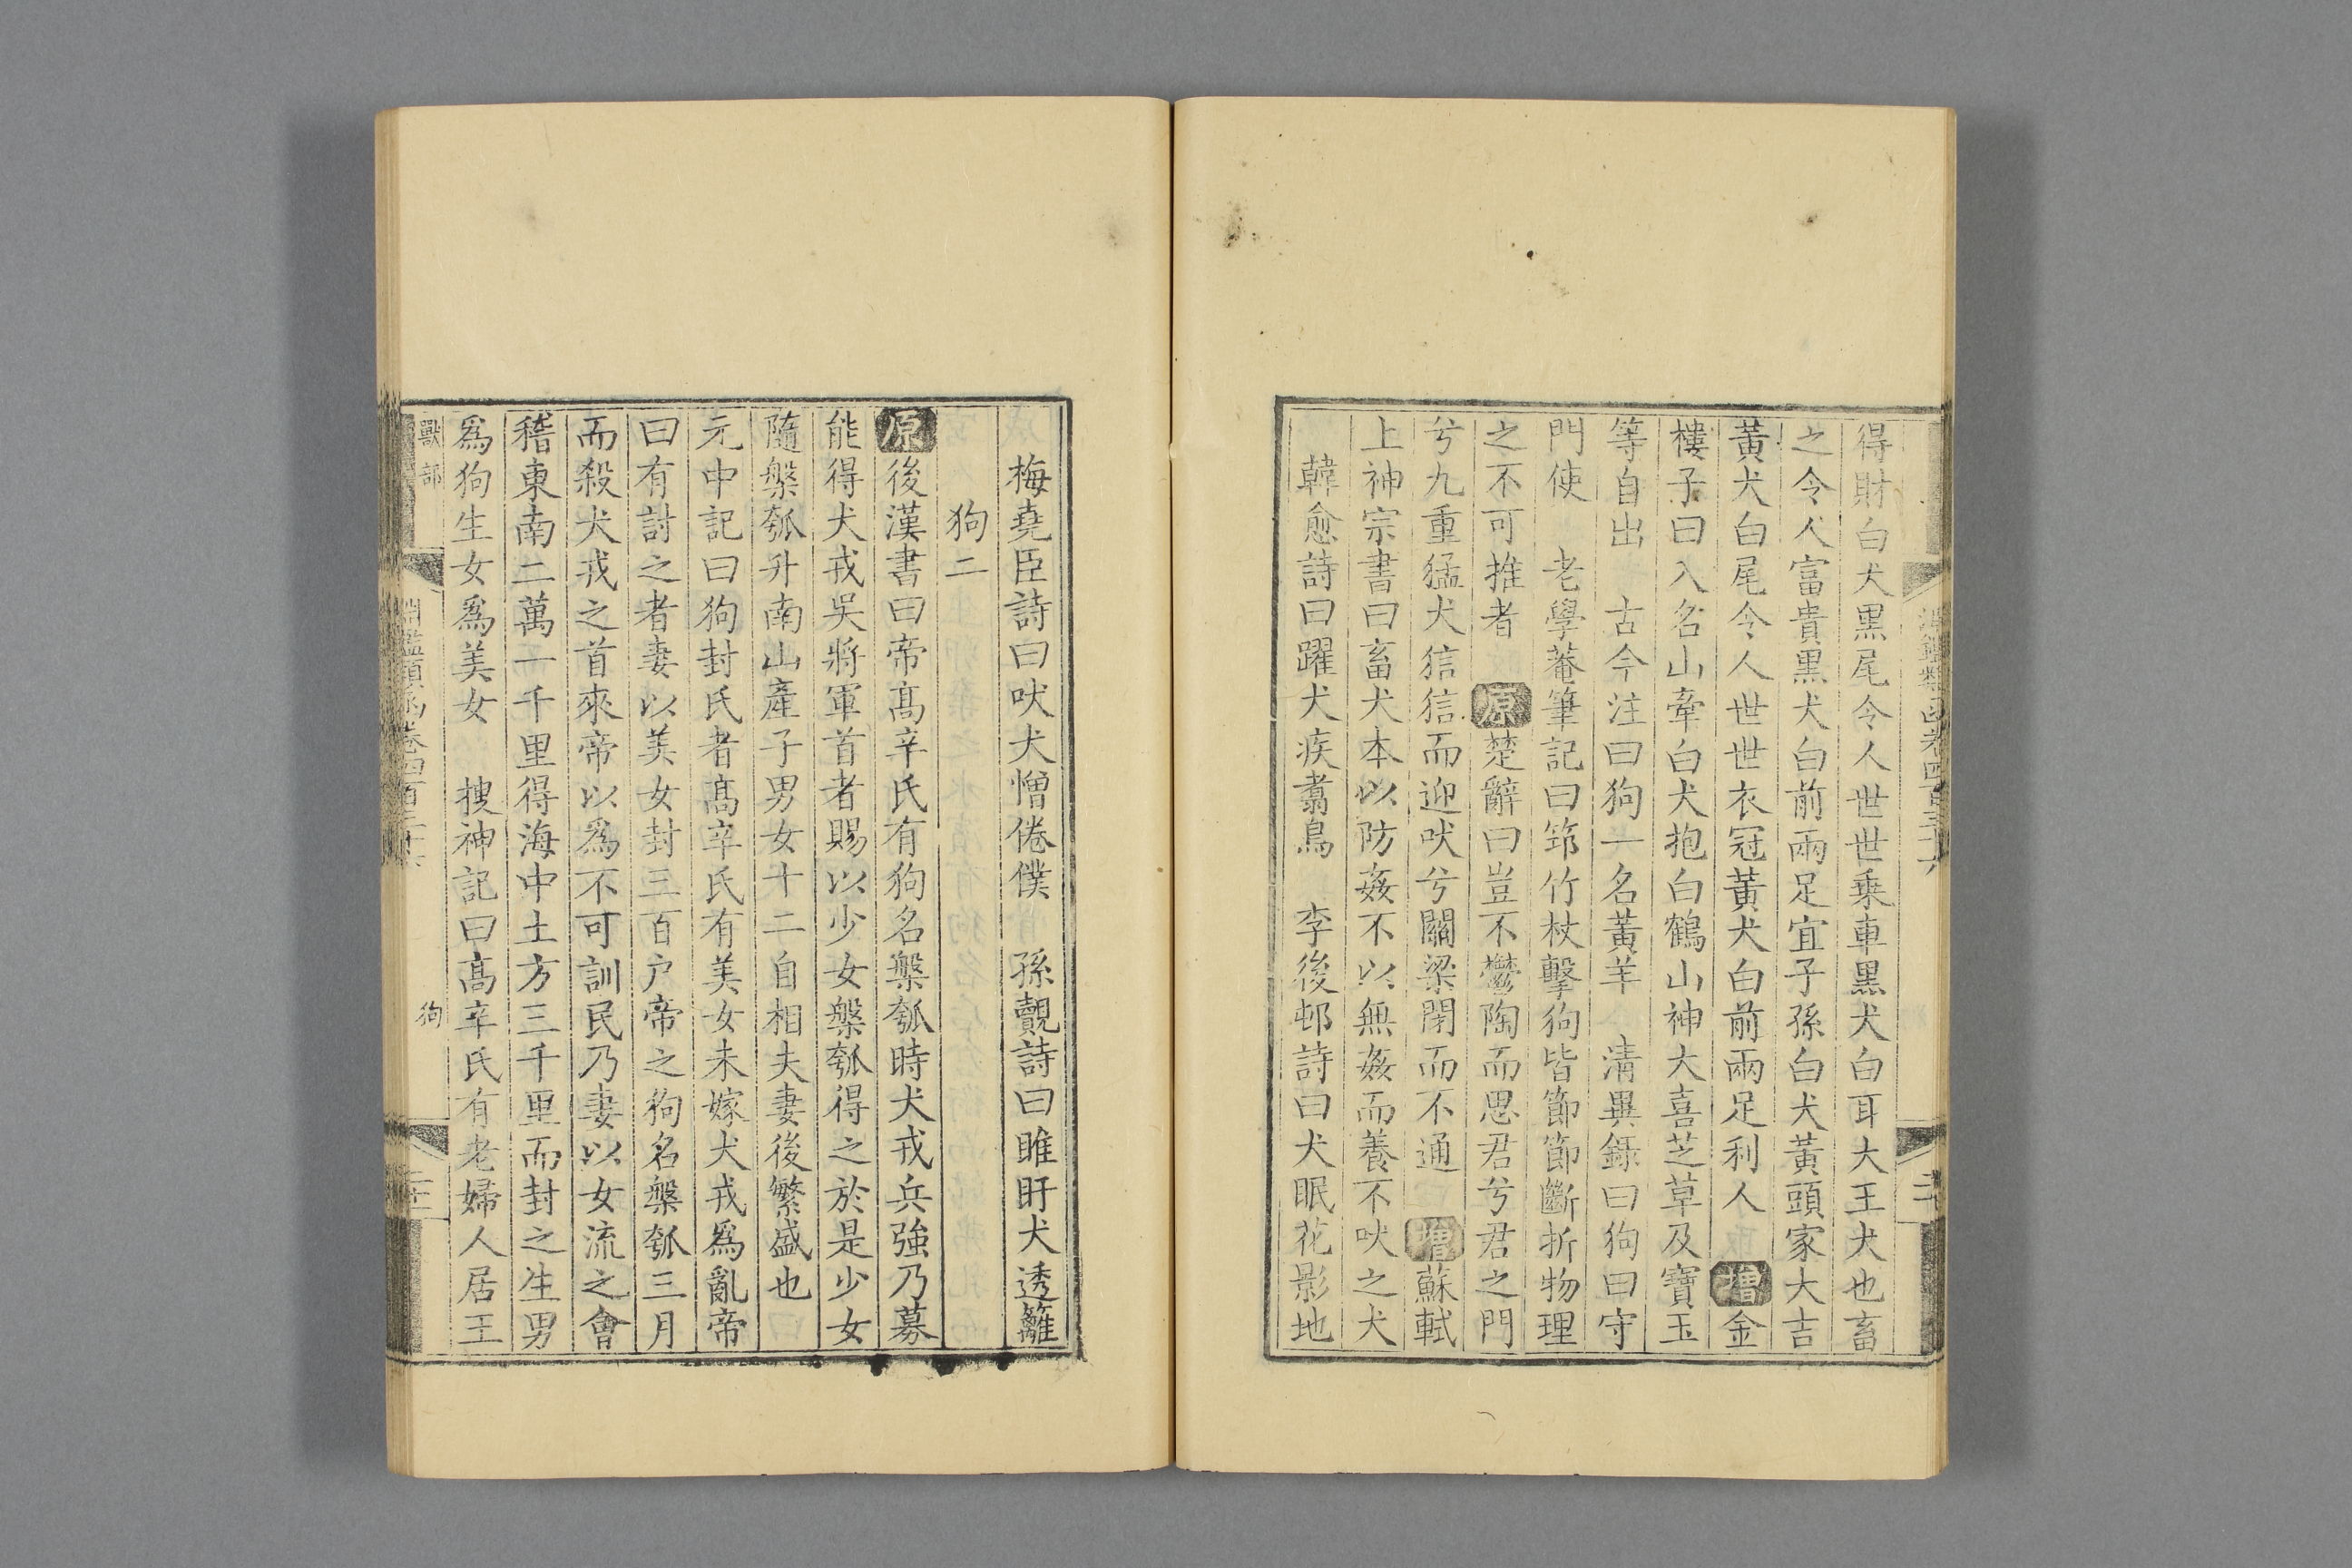 得財白犬黒尾令人世世乗車黒犬白耳大王犬也畜
之令人富貴黒犬白前兩足宜子孫白犬黃頭家大吉
黃犬白尾令人世世衣冠黃犬白前兩足利人 增 金
樓子曰入名山牽白犬抱白鶴山神大喜芝草及寶玉
等自出 古今注曰狗一名黃羊 清異錄曰狗曰守
門使 老學菴筆記曰筇竹杖擊狗皆節節斷折物理
之不可推者 原 楚辭曰豈不鬱陶而思君兮君之門
兮九重猛犬狺信而迎吠兮關梁閉而不通 增 蘇軾
上神宗書曰畜犬本以防姦不以無姦而養不吠之犬
韓愈詩曰躍犬疾翥鳥 李後邨詩曰犬眠花影地
梅堯臣詩曰吠犬憎倦僕 孫覿詩曰睢盱犬透籬
狗二
原 後漢書曰帝髙辛氏有狗名槃瓠時犬戎兵強乃募
能得犬戎吳將軍首者賜以少女槃瓠得之於是少女
隨槃瓠升南山產子男女十二自相夫妻後繁盛也
元中記曰狗封氏者髙辛氏有美女未嫁犬戎爲亂帝
曰有討之者妻以美女封三百户帝之狗名槃瓠三月
而殺犬戎之首來帝以爲不可訓民乃妻以女流之會
稽東南二萬一千里得海中土方三千里而封之生男
爲狗生女爲美女 搜神記曰髙辛氏有老婦人居王
獸部
狗